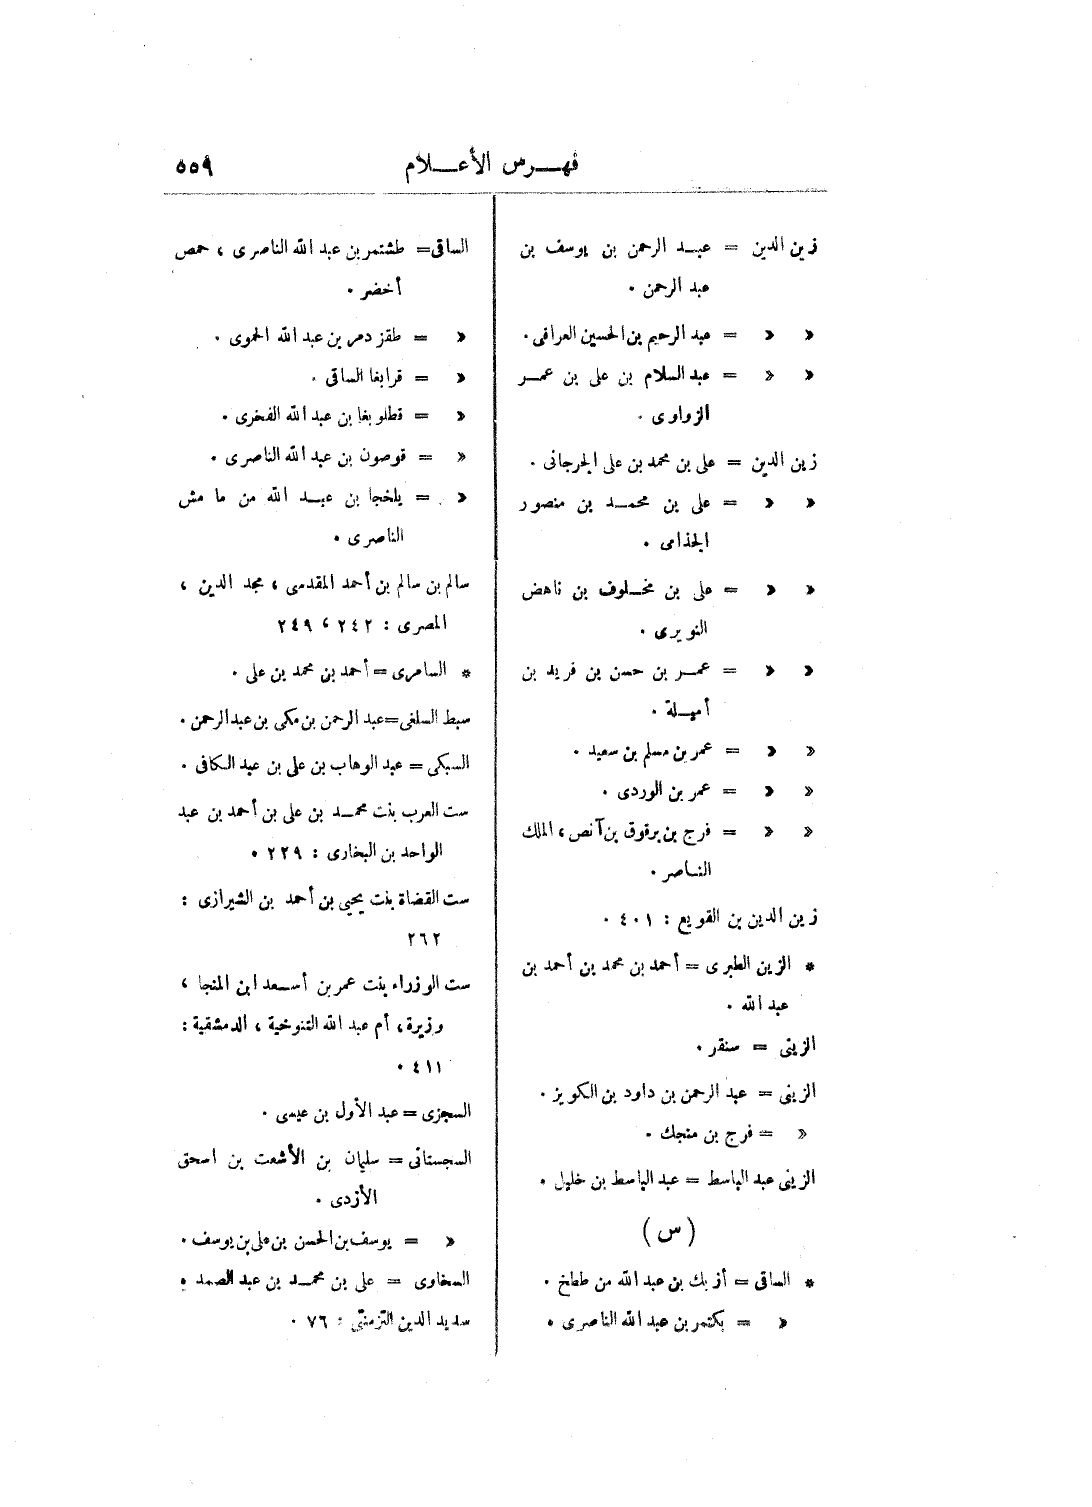 فهرس الأعلام ٥٥٩
زين الدين = عبد الرحمن بن يوسف بن
عبد الرحمن .
« « = عبد الرحيم بن الحسين العراقى .
« « = عبد السلام بن على بن عمر
الزواوى .
زين الدين = على بن محمد بن على الجرجانى .
« « = على بن محمد بن منصور
الجذامى .
« « = على بن مخلوف بن ناهض
النويرى .
« « = عمر بن حسن بن فريد بن
أميلة .
« « = عمر بن مسلم بن سعيد .
« « = عمر بن الوردى .
« « = فرج بن برقوق بن آنص ، الملك
الناصر .
زين الدين بن القويع : ٤٠١ .
* الزين الطبرى = أحمد بن محمد بن أحمد بن
عبد الله .
الزينى = سنقر .
الزينى = عبد الرحمن بن داود بن الكويز .
« = فرج بن منجك .
الزينى عبد الباسط = عبد الباسط بن خليل .
( س )
* الساقى = أزبك بن عبد الله من ططخ .
« = بكتمر بن عبد الله الناصرى .
الساقى = طشتمر بن عبد الله الناصرى ، حمص
أخضر .
« = طقز دمر بن عبد الله الحموى .
« = قرابغا الساقى .
« = قطلوبغا بن عبد الله الفخرى .
« = قوصون بن عبد الله الناصرى .
« = يلخجا بن عبد الله من ما مش
الناصرى .
سالم بن سالم بن أحمد المقدمى ، مجد الدين ،
المصرى : ٢٤٢ ، ٢٤٩
* السامرى = أحمد بن محمد بن على .
سبط السلفى = عبد الرحمن بن مكى بن عبد الرحمن .
السبكى = عبد الوهاب بن على بن عبد الكافى .
ست العرب بنت محمد بن على بن أحمد بن عبد
الواحد بن البخارى : ٢٢٩ .
ست القضاة بنت يحيى بن أحمد بن الشيرازى :
٢٦٢
ست الوزراء بنت عمر بن أسعد ابن المنجا ،
وزيرة ، أم عبد الله التنوخية ، الدمشقية :
٤١١ .
السجزى = عبد الأول بن عيسى .
السجستانى = سليمان بن الأشعت بن اسحق
الأزدى .
« = يوسف بن الحسن بن على بن يوسف .
السخاوى = على بن محمد بن عبد الصمد .
سديد الدين التزمنتى : ٧٦ .